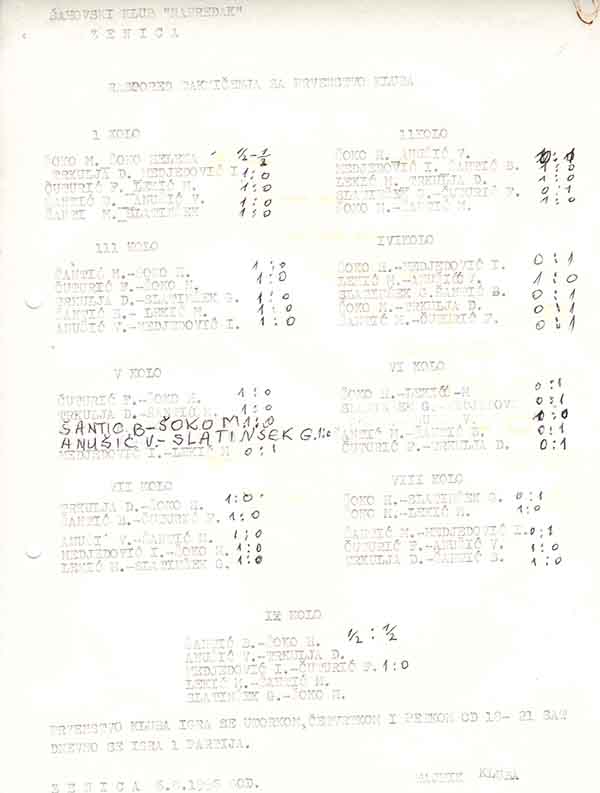 ŠAHOVSKI KLUB "NAPREDAK"
Z E N I C A
RASPORED TAKMIČENJA ZA PRVENSTVO KLUBA
I KOLO
ŠOKO M. ŠOKO HELENA ½-½
TRKULJA D. MEDJEDOVIĆ I 1:0
ČUTURIĆ F. LEKIĆ M. 1:0
ŠANTIĆ B. ANUŠIĆ V. 1:0
ŠANTI M. SLATINŠEK 1:0
II KOLO
ŠOKO H. ANUŠIĆ V.
MEDJEDOVIĆ I. ŠANTIĆ B. 1:0
LEKIĆ M. TRKULJA D. 1:0
SLATINŠEK G. ČUTURIĆ F. 0:1
ŠOKO M.-ŠANTIĆ M. 1:0
III KOLO
ŠANTIĆ M.-ŠOKO H. 1:0
ČUTURIĆ F.-ŠOKO M. 1:0
TRKULJA D.-SLATINŠEK G. 1:0
ŠANTIĆ B.- LEKIĆ M. 1:0
ANUŠIĆ V.-MEDJEDOVIĆ I. 1:0
IV KOLO
ŠOKO H.-MEDJEDOVIĆ I. 0:1
LEKIĆ M.-ANUŠIĆ V. 1:0
SLATINŠEK G. ŠANTIĆ B. 0:1
ŠOKO M.-TRKULJA D. 0:1
ŠANTIĆ M.-ČUTURIĆ F. 0:1
V KOLO
ČUTURIĆ F.-ŠOKO H. 1:0
TRKULJA D.-ŠANTIĆ M. 1:0
ŠANTIC B-ŠOKO M 1:0
ANUŠIĆ V.-SLATINŠEK G. 1:0
MEDJEDOVIĆ I.-LEKIĆ M 0:1
VI KOLO
ŠOKO H.-LEKIĆ-M 0:1
SLATINŠEK G.-MEDJEDOVI 0:1
V. 1:0
ŠANTIĆ M.-ŠANTIĆ B. 0:1
ČUTURIĆ F.-TRKULJA D. 0:1
VII KOLO
TRKULJA D.-ŠOKO H. 1:0
ŠANTIĆ B.-ČUTURIĆ F. 1:0
ANUŠIĆ V.-ŠANTIĆ M. 1:0
MEDJEDOVIĆ I.-ŠOKO M. 1:0
LEKIĆ M.-SLATINŠEK G. 1:0
VIII KOLO
ŠOKO H.-SLATINŠEK G. 0:1
ŠOKO M.-LEKIĆ M. 1:0
ŠANTIĆ M.-MEDJEDOVIĆ I. 0:1
ČUTURIĆ F.-ANUŠIĆ V. 1:0
TRKULJA D.-ŠANTIĆ B. 1:0
IX KOLO
ŠANTIĆ B.-ŠOKO H. ½:½
ANUŠIĆ V.-TRKULJA D.
MEDJEDOVIĆ I.-ČUTURIĆ F. 1:0
LEKIĆ M.-ŠANTIĆ M.
SLATINŠEK G.-ŠOKO M.
PRVENSTVO KLUBA IGRA SE UTORKOM, ČETVRTKOM I PETKOM OD 18- 21 SAT
DNEVNO SE IGRA 1 PARTIJA.
Z E N I C A GOD. KLUBA